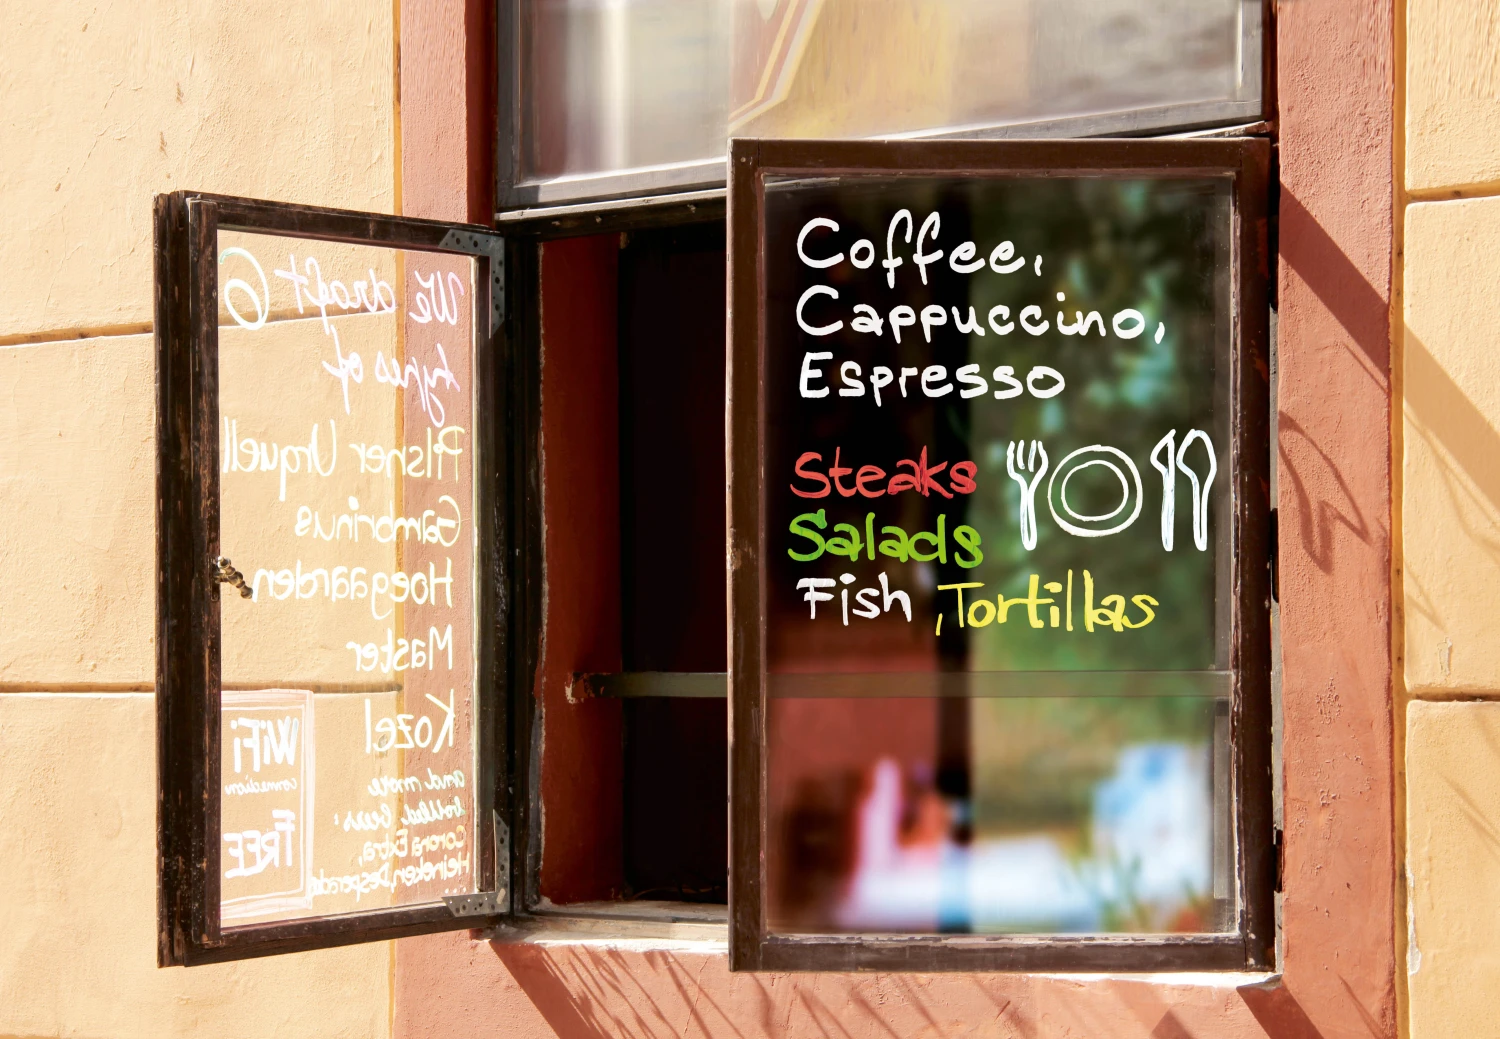 We draft 6
types of
Pilsner Urquell
Gambrinus
Hoegaarden
Master
Kozel
and more
bottled beers:
Corona Extra,
Heineken, Desperado
...
WiFi
connection
FREE
Coffee,
Cappuccino,
Espresso
Steaks
Salads
Fish ,Tortillas